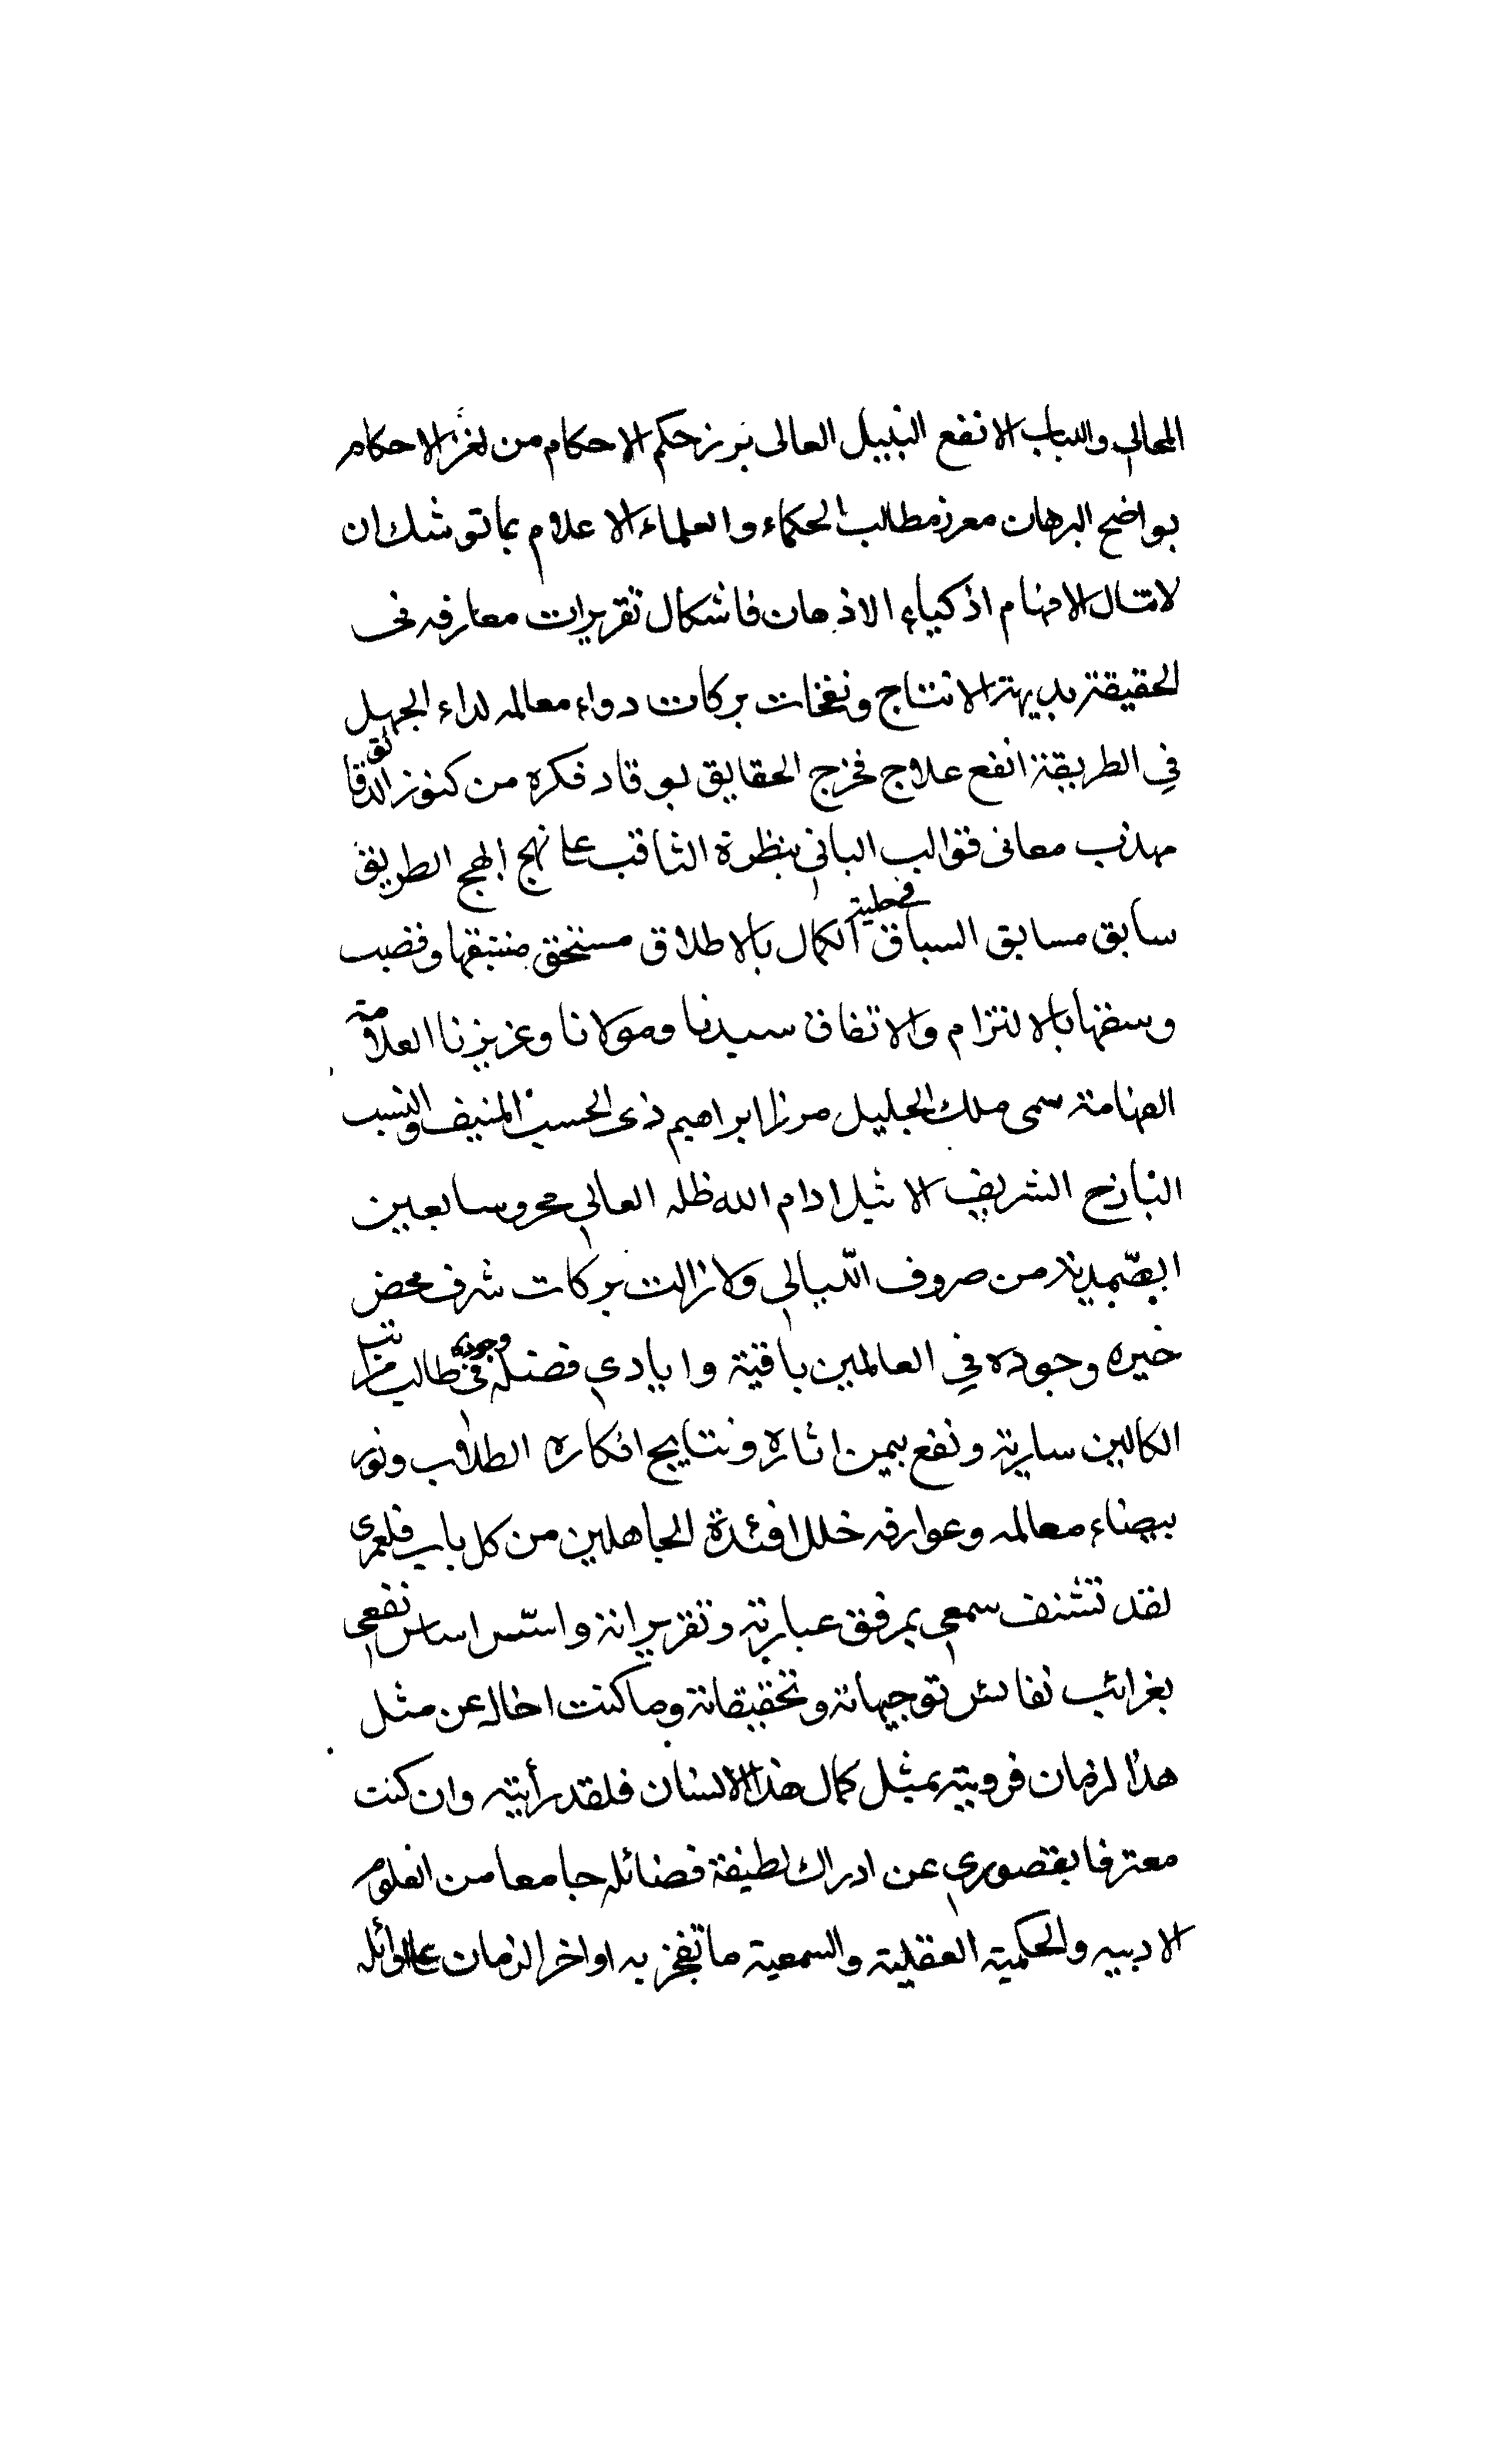 المعالي واللباب الانفع النبيل العالى برز حكم الاحكام من لغز الاحكام
بواضح البرهان معرز مطالب الحكماء والعلماء الاعلام بما توشك ان
لاتنال الافهام اذكياء الاذهان فاشكال تقريرات معارفه فى
الحقيقة بديهة الانتاج ونفخات بركات دواء معالمه لداء الجهل
في الطريقة انفع علاج فخزج الحقايق بوقاد فكره من كنوز الدقائق
مهذب معانى قوالب البانى بنظرة الثاقب على نهج ابهج الطريق
سابق مسابق السباق فى حلية الكمال بالاطلاق مستحق منتبقها وقصب
وسبقها بالالتزام والاتفاق سيدنا ومولانا وعزيزنا العلامة
الفهامة سمى ملك الجليل مرزا ابراهيم ذى الحسب المنيف والنسب
الباذخ الشريف الاثيل ادام الله ظله العالي محروسا بعين
الصمدية من صروف اللّيالي ولازالت بركات شرف محض
خيره وجوده في العالمين باقية وايادي فضله وجوده فى طالب مراتب
الكالين سارية ونفع بيمن اثاره ونتايج افكاره الطلاب ونور
ببيضاء معالمه وعوارفه خلل افئدة الجاهلين من كل باب فلعمرى
لقد تشنف سمعي بمرفق عبارته وتقريراته واسّس اساس نفعي
بغرائب نفائس توجيهاته وتحقيقاته وما كنت اخال عن مثل
هذا لزمان فرويته بمثل كمال هذا الانسان فلقد رأيته وان كنت
معترفا بقصوري عن ادراك لطيفة فضائله جامعا من العلوم
الادبيه والحكمية العقلية والسمعية ما تفجز به اواخر الزمان على اوائله